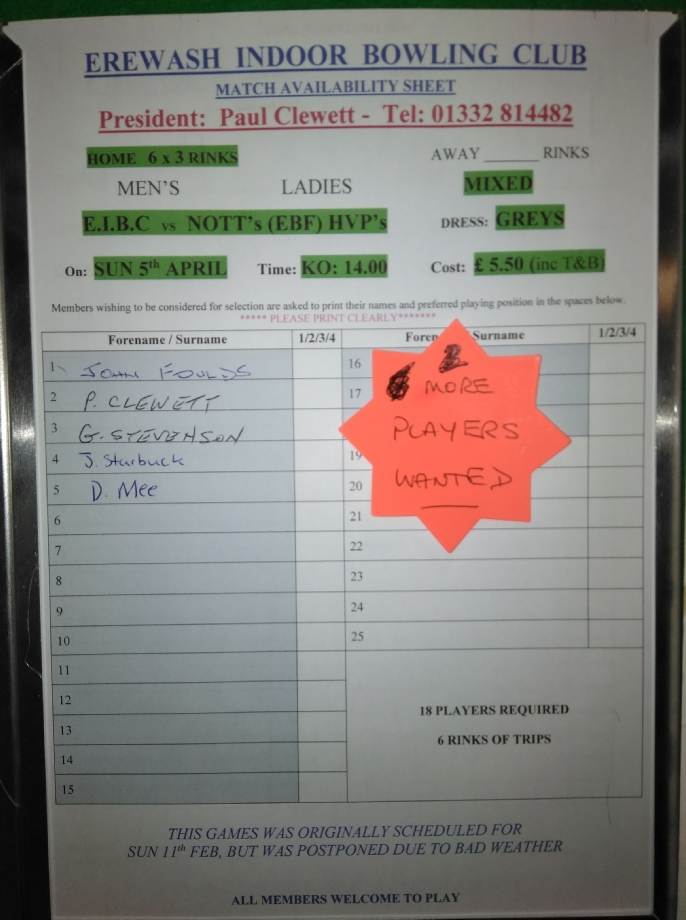 EREWASH INDOOR BOWLING CLUB
MATCH AVAILABILITY SHEET
President: Paul Clewett - Tel: 01332 814482
HOME 6 x 3 RINKS AWAY ______ RINKS
MEN'S LADIES MIXED
E.I.B.C vs NOTT's (EBF) HVP's DRESS: GREYS
On: SUN 5th APRIL Time: KO: 14.00 Cost: £ 5.50 (inc T&B)
Members wishing to be considered for selection are asked to print their names and preferred playing position in the spaces below.
***** PLEASE PRINT CLEARLY*******
Forename / Surname 1/2/3/4 Foren Surname 1/2/3/4
1 JOHN FOULDS
2 P. CLEWETT
3 G. STEVENSON
4 J. Starbuck
5 D. Mee
6
7
8
9
10
11
12
13
14
15
16
17
19
20
21
22
23
24
25
2
MORE
PLAYERS
WANTED
18 PLAYERS REQUIRED
6 RINKS OF TRIPS
THIS GAMES WAS ORIGINALLY SCHEDULED FOR
SUN 11th FEB, BUT WAS POSTPONED DUE TO BAD WEATHER
ALL MEMBERS WELCOME TO PLAY